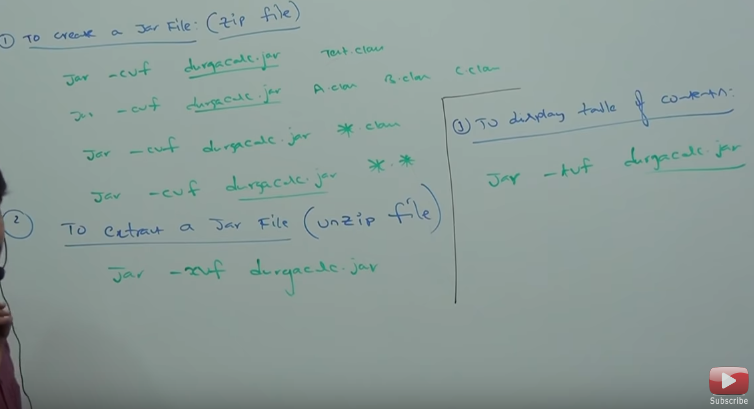 ① To create a Jar File: (zip file)
Jar -cvf durgacalc.jar Test.class
Jar -cvf durgacalc.jar A.class B.class C.class
Jar -cvf durgacalc.jar *.class
Jar -cvf durgacalc.jar *.*
② To extract a Jar File (unzip file)
Jar -xvf durgacalc.jar
③ To display table of contents:
Jar -tvf durgacalc.jar
Subscribe